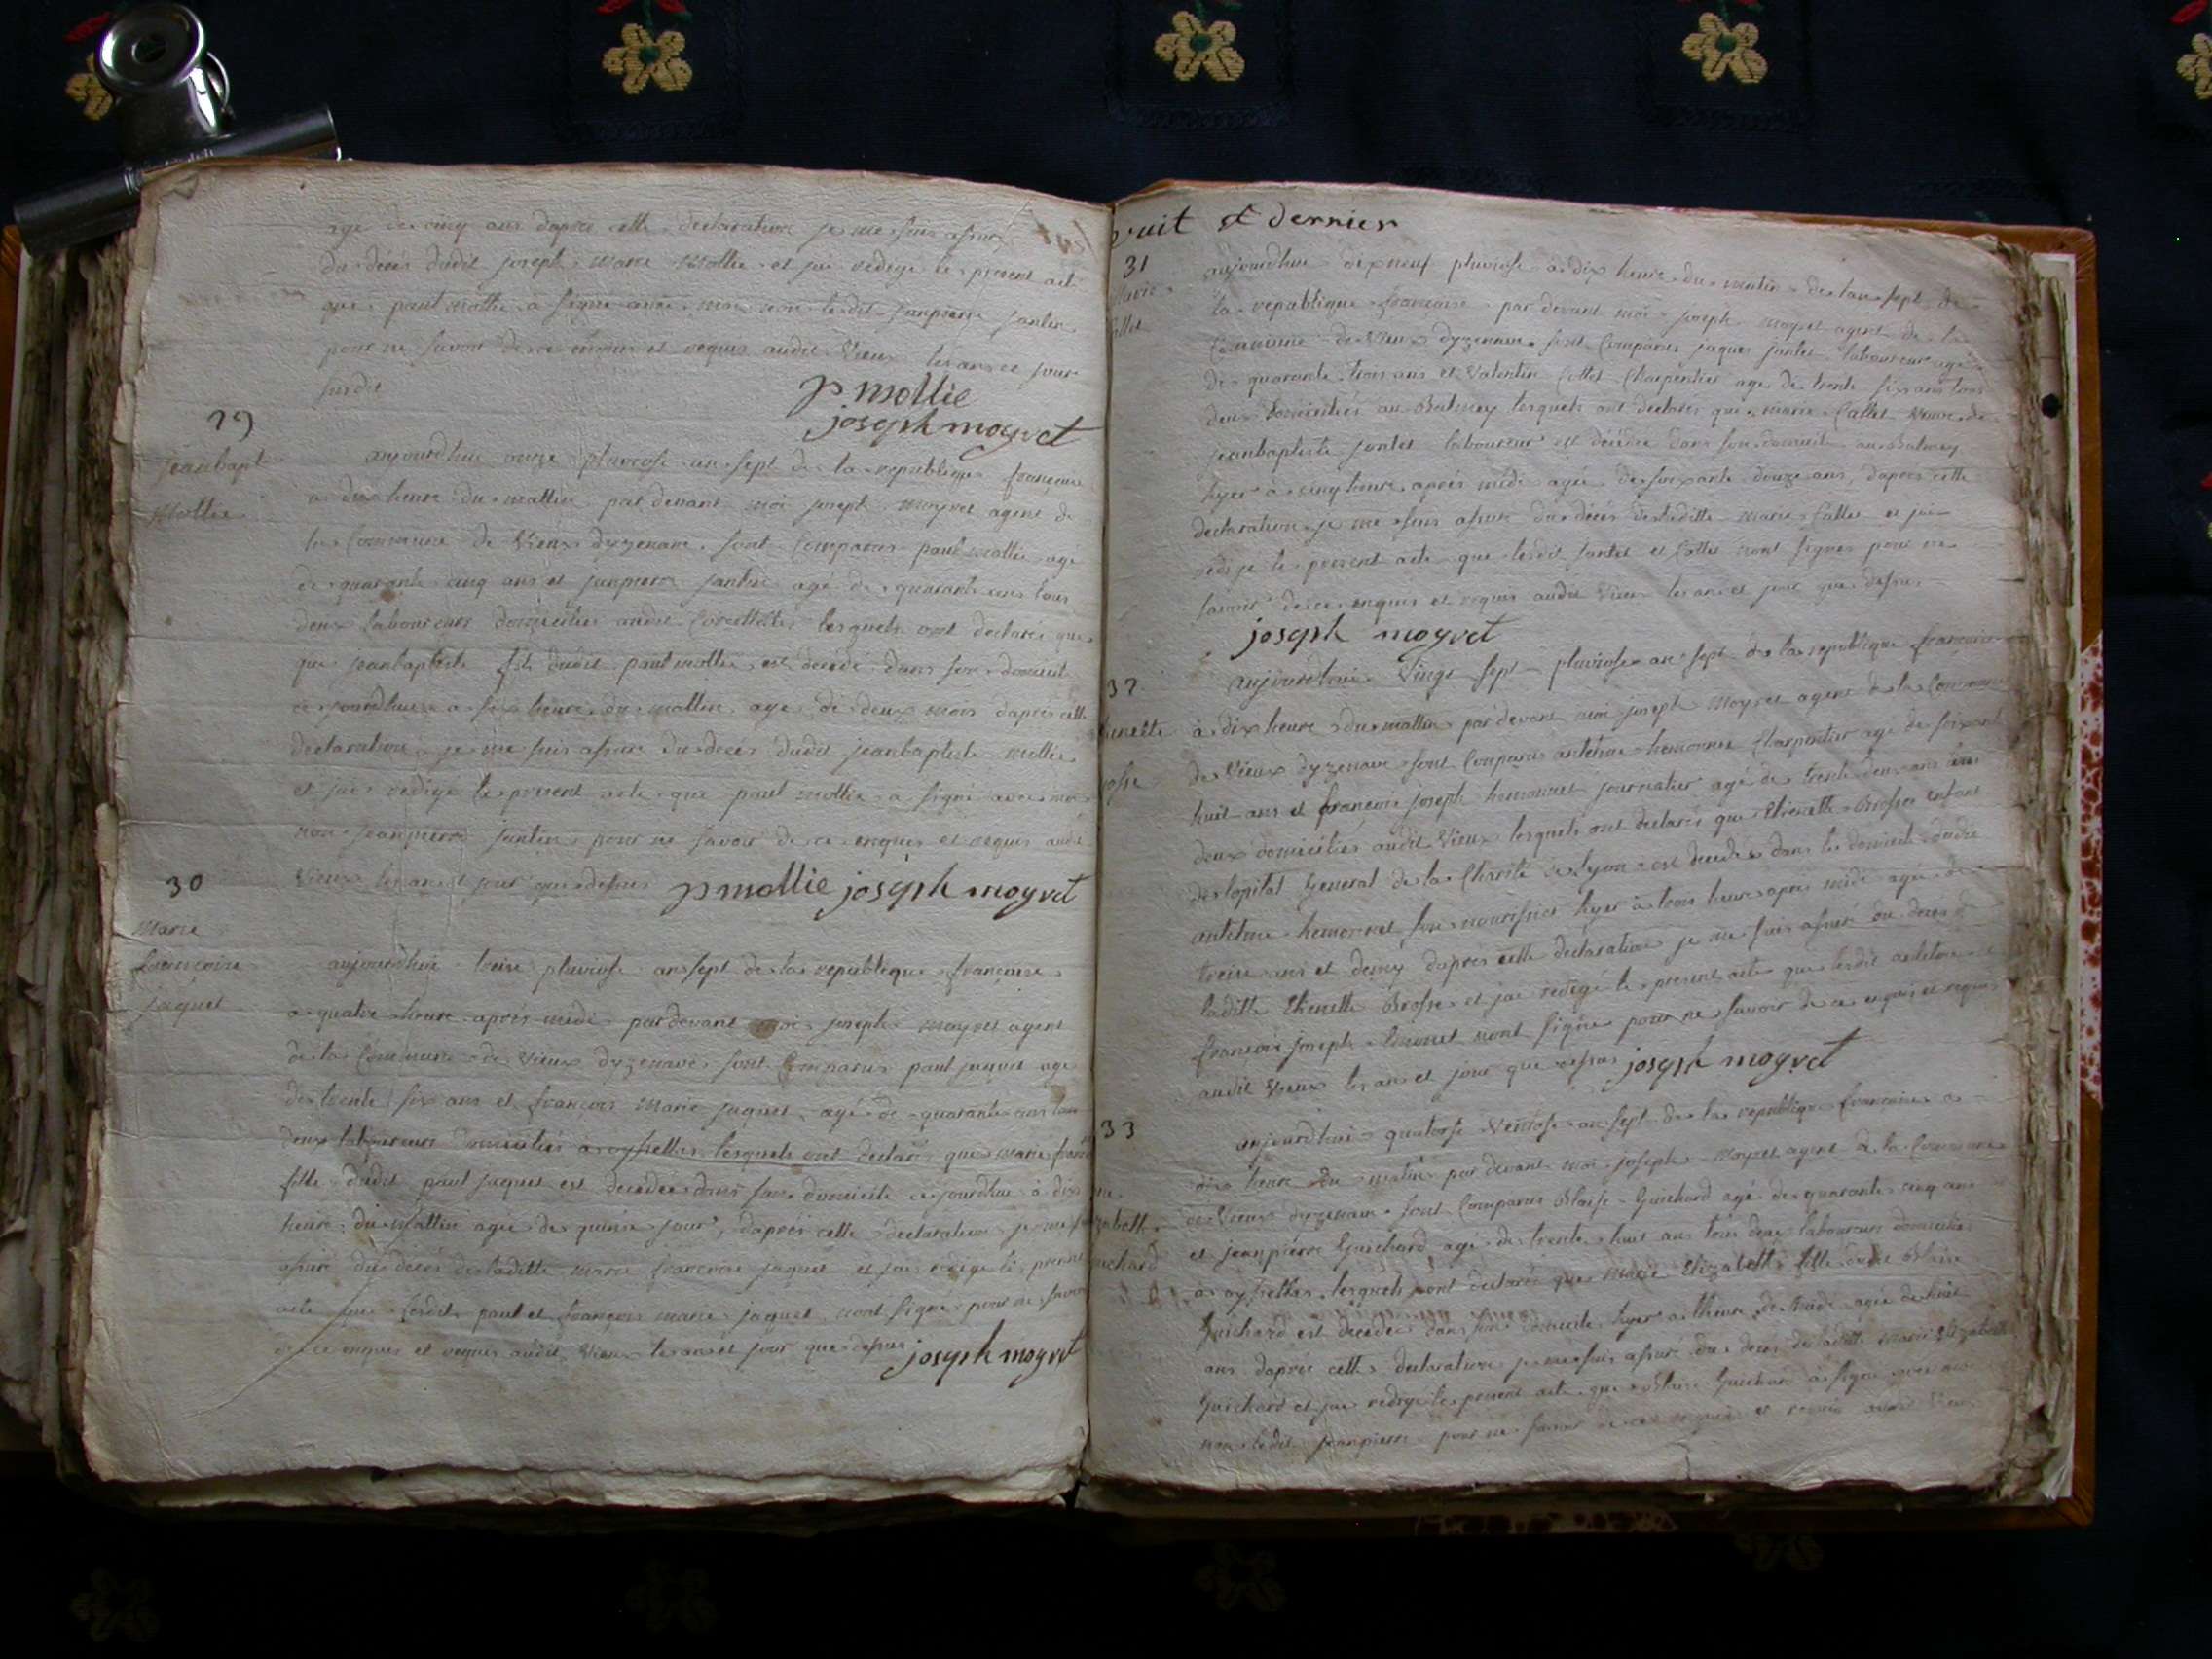 agé de cinq ans daprés cette declaration je me suis assuré
du décés dudit joseph marie mollie et jai redigé le present acte
que paul mollie a signé avec moi non ledit jeanpierre jantin
pour ne savoir de ce enquis et requis audit Vieux les an et jour
susdit
p mollie
joseph moyret
29
jeanbapt
Mollie
aujourdhui onze pluviose an sept de la republique françaire
a dix heure du mattin par devant moi joseph moyret agent de
la Commune de Vieux dyzenave sont Comparus paul mollie agé
de quarante cinq ans et jeanpierre jantin agé de quarante ans tous
deux laboureurs domiciliés audit lesquels ont declarés que
que jeanbaptiste fils dudit paul mollie est decedé dans son domicile
ce jourdhui a six heure du mattin agé de deux mois daprés cette
declaration je me suis assuré du decés dudit jeanbaptiste mollie
et jai redigé le present acte que paul mollie a signé avec moi
non jeanpierre jantin pour ne savoir de ce enquis et requis audit
Vieux les an et jour que dessus p mollie joseph moyret
30
Marie
francoise
jaquet
aujourdhui treize pluviose an sept de la republique françaire
a quatre heure aprés midi par devant moi joseph moyret agent
de la Commune de Vieux dyzenave sont Comparus paul jaquet agé
de trente six ans et françois Marie jaquet agé de quarante ans tous
deux laboureurs domiciliés a oysellas lesquels ont declarés que marie
fille dudit paul jaquet est decedée dans son domicile ce jourdhui à dix
heure du mattin agée de quinze jour, daprés cette declaration je me
assuré du décés de laditte marie francoise jaquet et jai redigé le present
acte que lesdits paul et françois marie jaquet nont signé pour ne savoir
de ce enquis et requis audit Vieux les an et jour que dessus joseph moyret
vuit et dernier
31
Marie
Callet
aujourdhui dixneuf pluviose à dix heure du mattin de lan sept de
la republique francaire par devant moi joseph moyret agent de la
Commune de Vieux dyzenave sont Comparus jaques jantet laboureur agé
de quarante trois ans et Valentin Callet Charpentier agé de trente six ans tous
deux domiciliés au Balmey lesquels ont declarés que marie Callet Veuve de
jeanbaptiste jantet laboureur est décédée dans son domicile au Balmey
hyer à cinq heure aprés midi agée de soixante douze ans, daprés cette
declaration je me suis assuré du décés de laditte marie Callet et jai
redigé le present acte que lesdit jantet et Callet nont signés pour ne
savoir de ce enquis et requis audit Vieux les an et jour que dessus
joseph moyret
32
aujourdhui Vingt sept pluviose an sept de la republique francaire
à dix heure du mattin par devant moi joseph Moyret agent de la Commune
de Vieux dyzenave sont Comparus antelme hemonnet Charpentier agé de soixante
huit ans et francois joseph hemonnet journalier agé de trente deux ans tous
deux domiciliés audit Vieux lesquels ont declarés que Etienette Brosse enfant
de lopital General de la Charité de Lyon est decedée dans le domicile dudit
antelme hemonnet son nourissier hyer à trois heure aprés midi agée de
treize ans et demy daprés cette declaration je me suis assuré du décés de
laditte Etienette Brosse et jai redigé le present acte que lesdit antelme et
francois joseph hemonnet nont signés pour ne savoir de ce enquis et requis
audit Vieux les an et jour que dessus joseph moyret
33
aujourdhui quatorse Ventose an sept de la republique francaire a
dix heure du mattin par devant moi joseph Moyret agent de la Commune
de Vieux dyzenave sont Comparus Blaise Guichard agé de quarante cinq ans
et jeanpierre Guichard agé de trente huit ans tous deux laboureurs domiciliés
à oysellas lesquels ont declarés que Marie Elizabeth fille dudit Blaise
Guichard est decedée dans son domicile hyer a lheure de midi agée de huit
ans daprés cette declaration je me suis assuré du decés de laditte Marie Elizabeth
Guichard et jai redigé le present acte que Blaise Guichard à signé avec moi
non ledit jeanpierre pour ne savoir de ce enquis et requis audit Vieux